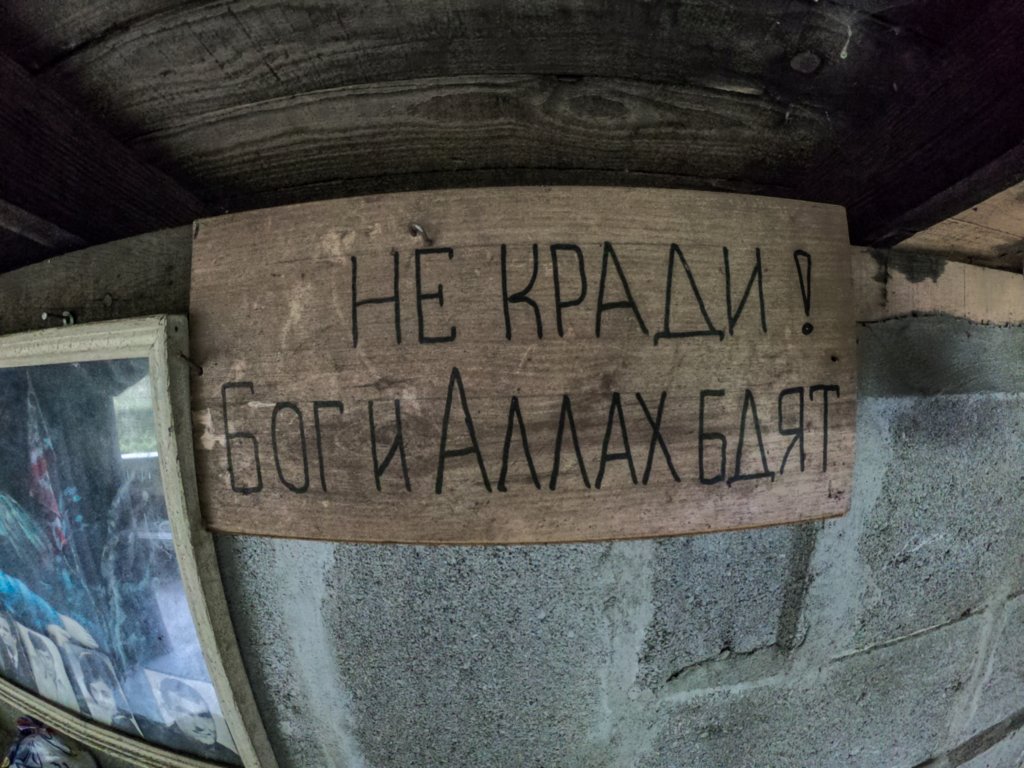 НЕ КРАДИ!
БОГ И АЛЛАХ БДЯТ